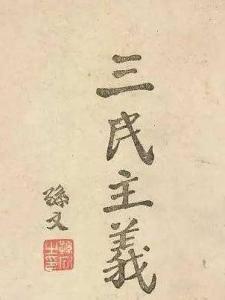 三民主義
孫文